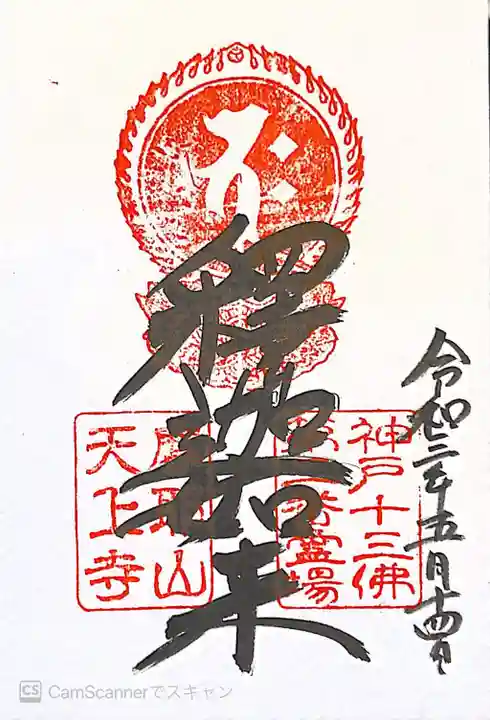 令和三年五月十四日
釋迦如来
神戸十三佛
第二番霊場
摩耶山
天上寺
CS CamScannerでスキャン